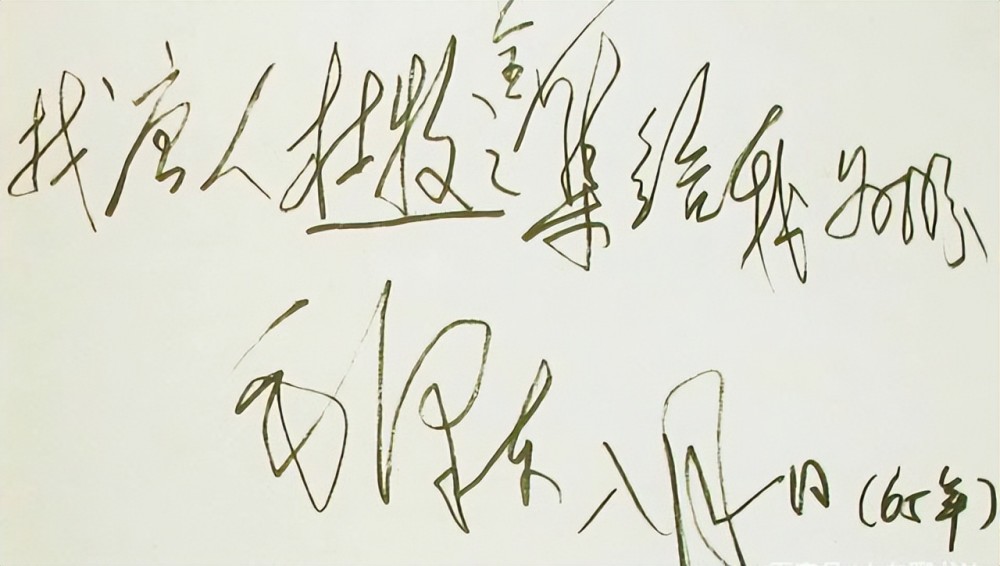 找唐人杜牧之全集给我为盼
毛泽东 八月 日(65年)